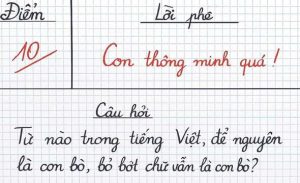 Điểm
Lời phê
10
Con thông minh quá !
Câu hỏi
Từ nào trong tiếng Việt, để nguyên
là con bò, bỏ bớt chữ vẫn là con bò?